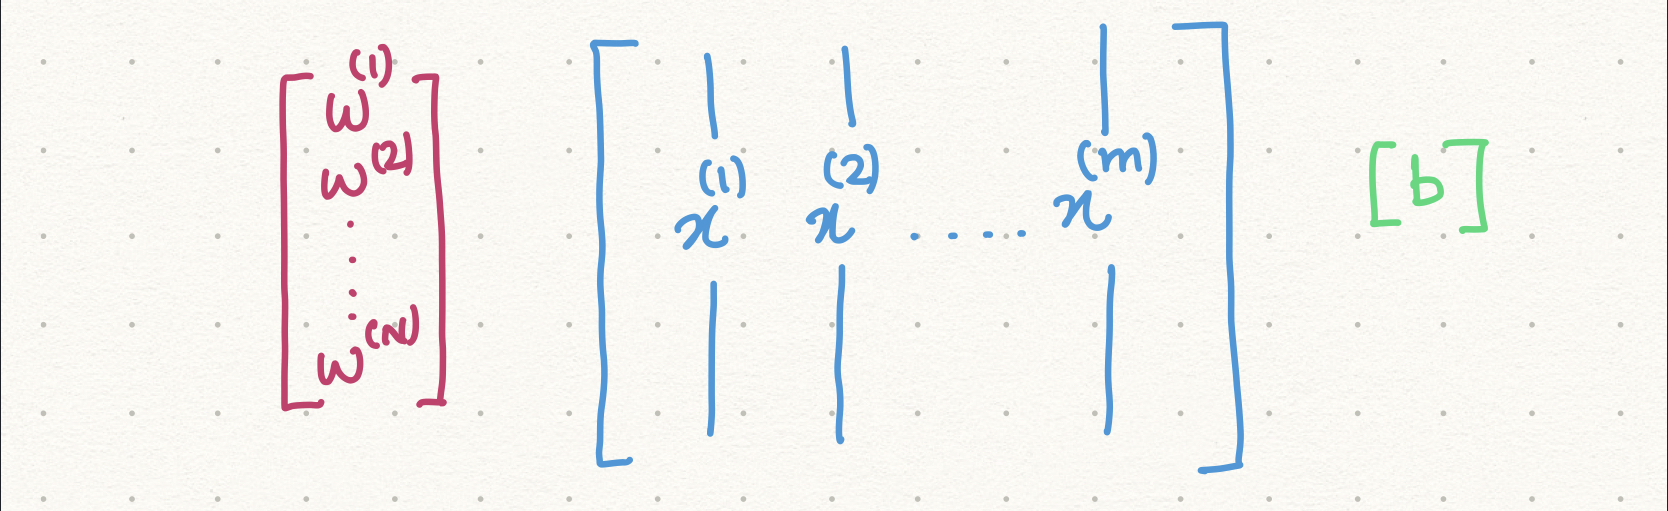 w^(1)
w^(2)
⋮
w^(n)
x^(1) x^(2) .... x^(m)
[b]